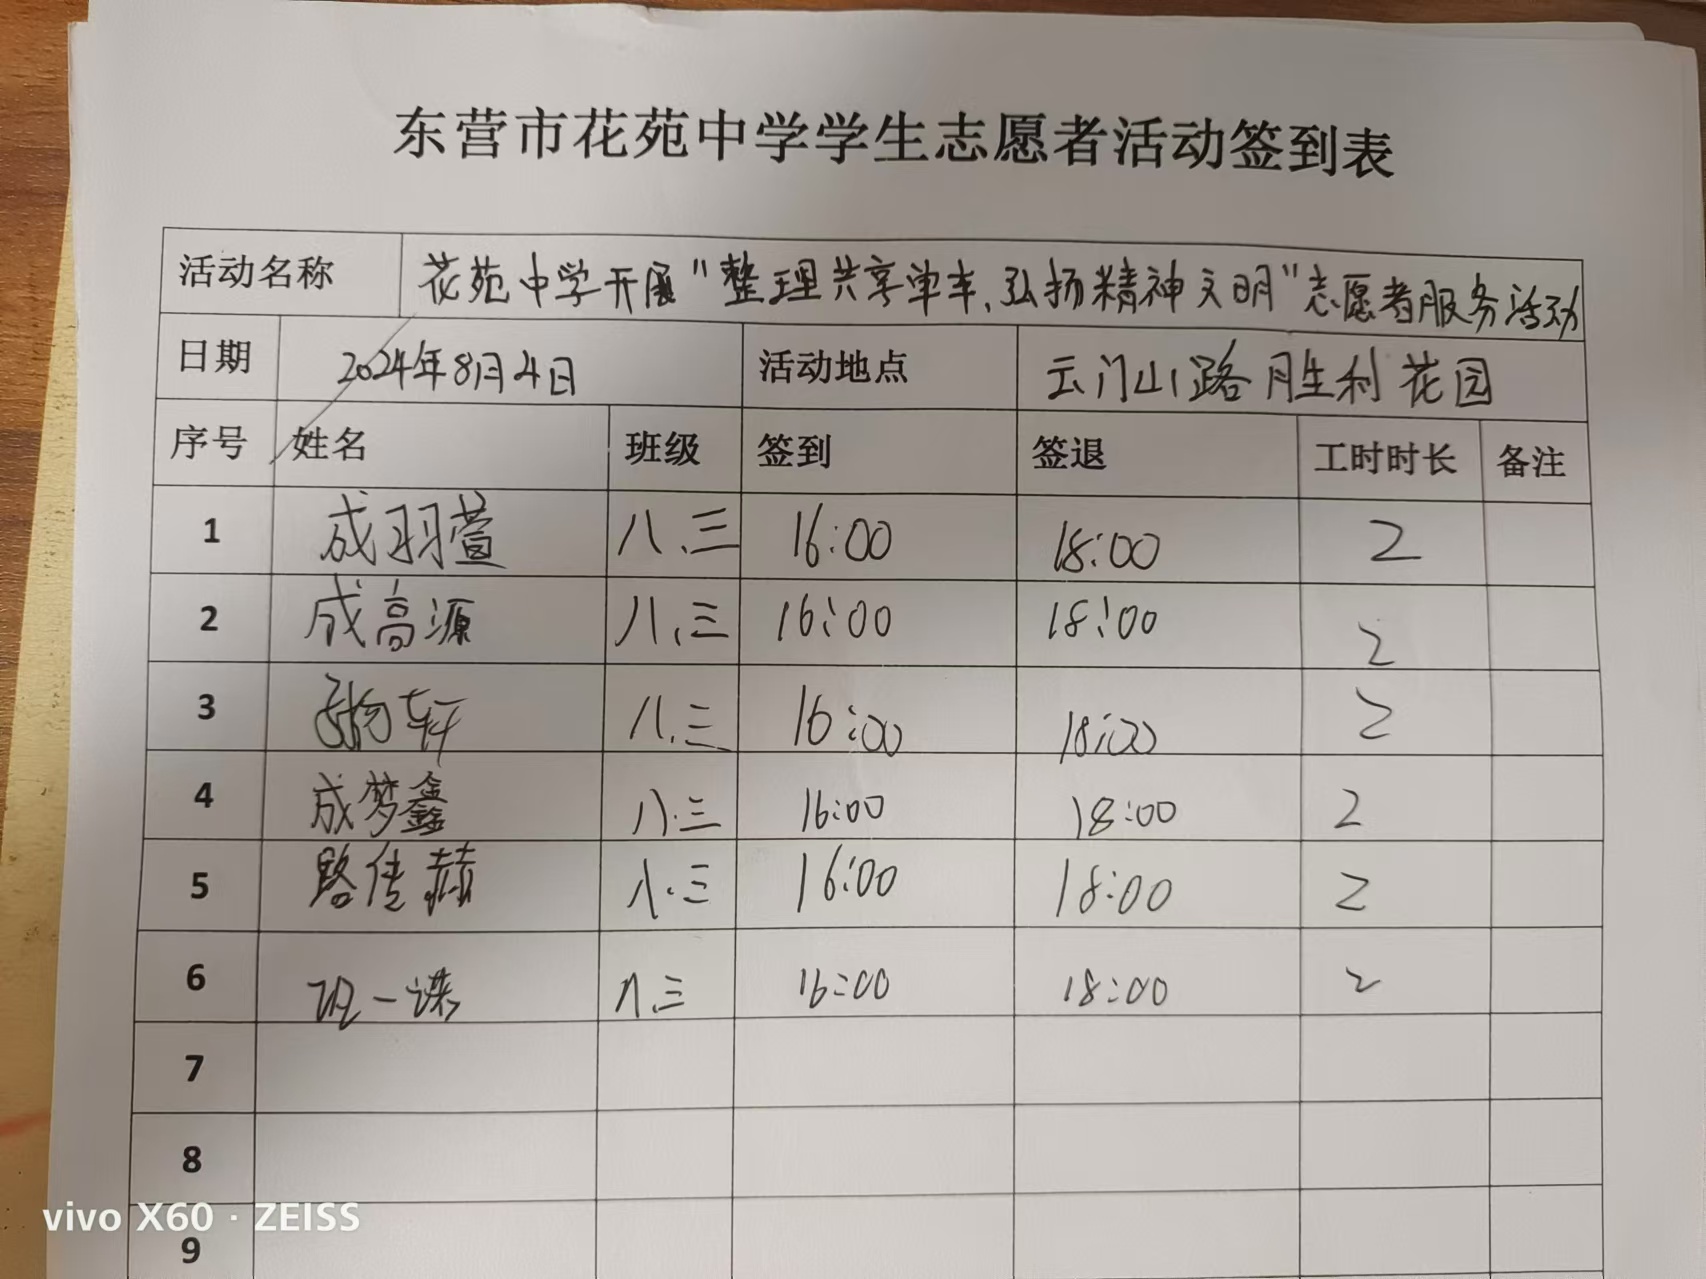 东营市花苑中学学生志愿者活动签到表
活动名称 花苑中学开展"整理共享单车、弘扬精神文明"志愿者服务活动
日期 2024年8月4日 活动地点 云门山路胜利花园
序号 姓名 班级 签到 签退 工时时长 备注
1 成羽萱 八.三 16:00 18:00 2
2 成高源 八.三 16:00 18:00 2
3 轩 八.三 16:00 18:00 2
4 成梦鑫 八.三 16:00 18:00 2
5 路传赫 八.三 16:00 18:00 2
6 一 八.三 16:00 18:00 2
7
8
9
vivo X60 · ZEISS